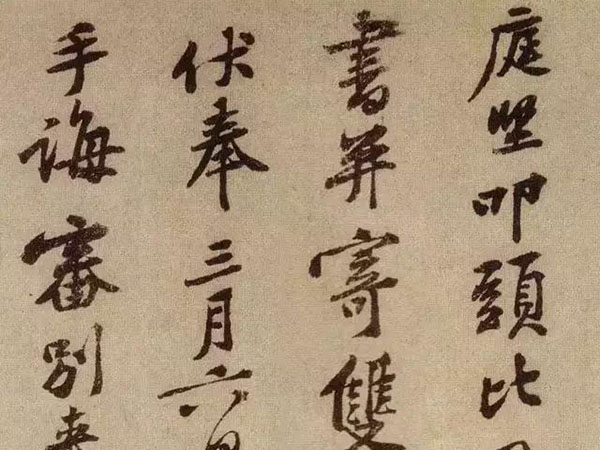 庭堅叩頭比
書并寄雙
伏奉三月六
手誨審別來